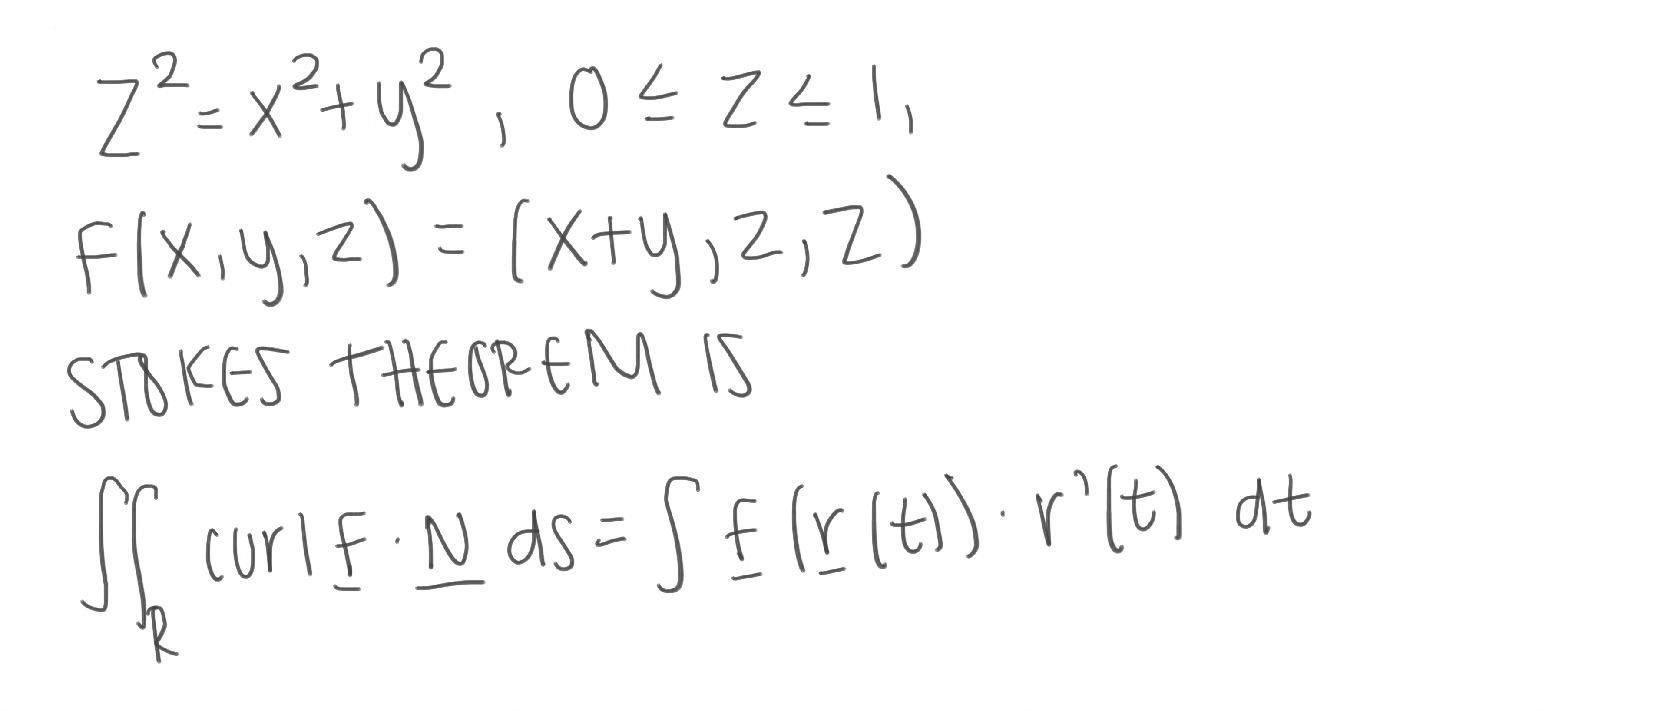 z²=x²+y², 0≤z≤1,
F(x,y,z)=(x+y,z,z)
STOKES THEOREM IS
∬_R curl F·N ds=∫F(r(t))·r'(t) dt